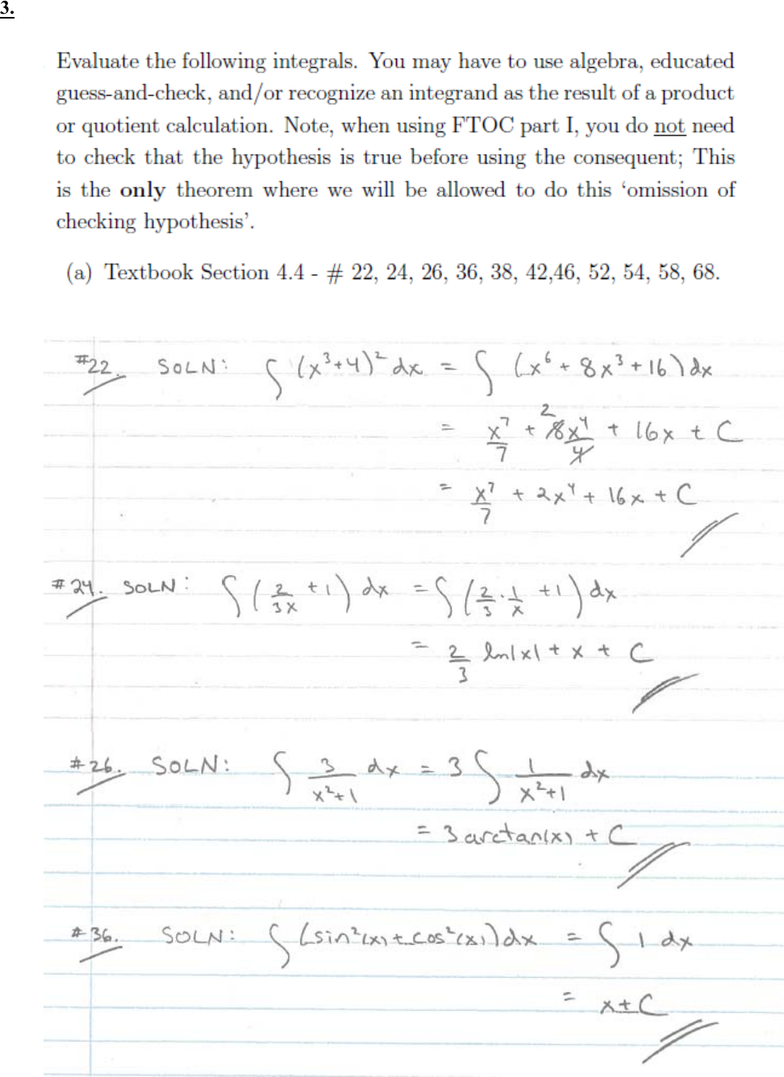 3.
Evaluate the following integrals. You may have to use algebra, educated
guess-and-check, and/or recognize an integrand as the result of a product
or quotient calculation. Note, when using FTOC part I, you do not need
to check that the hypothesis is true before using the consequent; This
is the only theorem where we will be allowed to do this ‘omission of
checking hypothesis’.
(a) Textbook Section 4.4 - # 22, 24, 26, 36, 38, 42,46, 52, 54, 58, 68.
#22. SOLN: ∫ (x³+4)² dx = ∫ (x⁶ + 8x³ + 16) dx
= x⁷/7 + 2 8x⁴/4 + 16x + C
= x⁷/7 + 2x⁴ + 16x + C
#24. SOLN: ∫ (2/3x + 1) dx = ∫ (2/3 · 1/x + 1) dx
= 2/3 ln|x| + x + C
#26. SOLN: ∫ 3/x²+1 dx = 3 ∫ 1/x²+1 dx
= 3 arctan(x) + C
#36. SOLN: ∫ (sin²(x) + cos²(x)) dx = ∫ 1 dx
= x + C